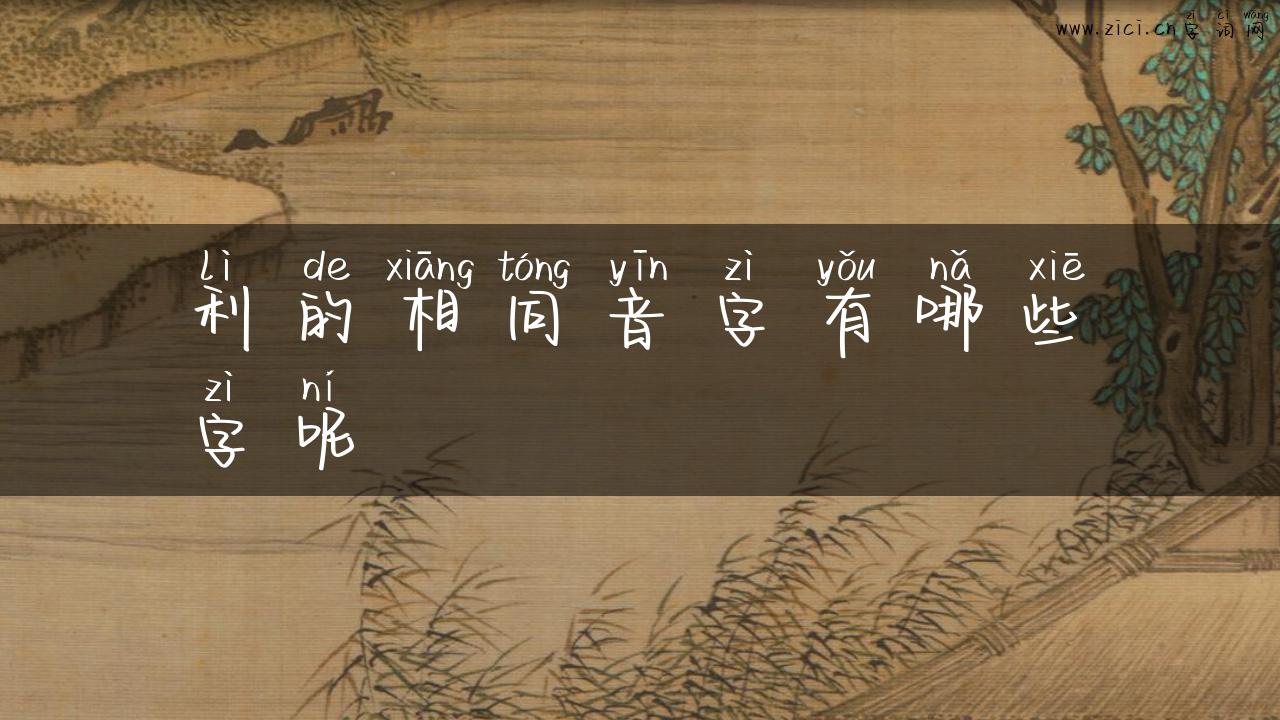 zì cí wǎng
www.zici.cn字词网
lì de xiāng tóng yīn zì yǒu nǎ xiē
利的相同音字有哪些
zì ní
字呢